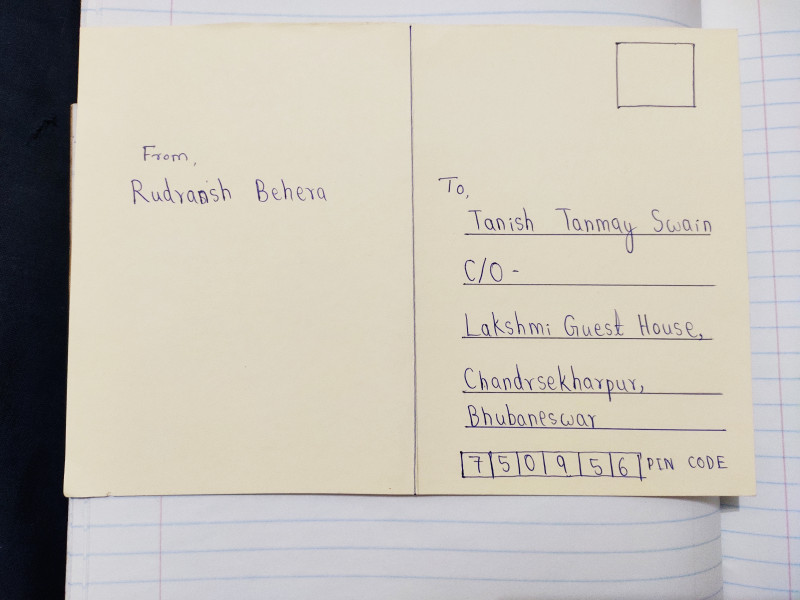 From,
Rudransh Behera
To,
Tanish Tanmay Swain
C/O -
Lakshmi Guest House,
Chandrsekharpur,
Bhubaneswar
750956 PIN CODE